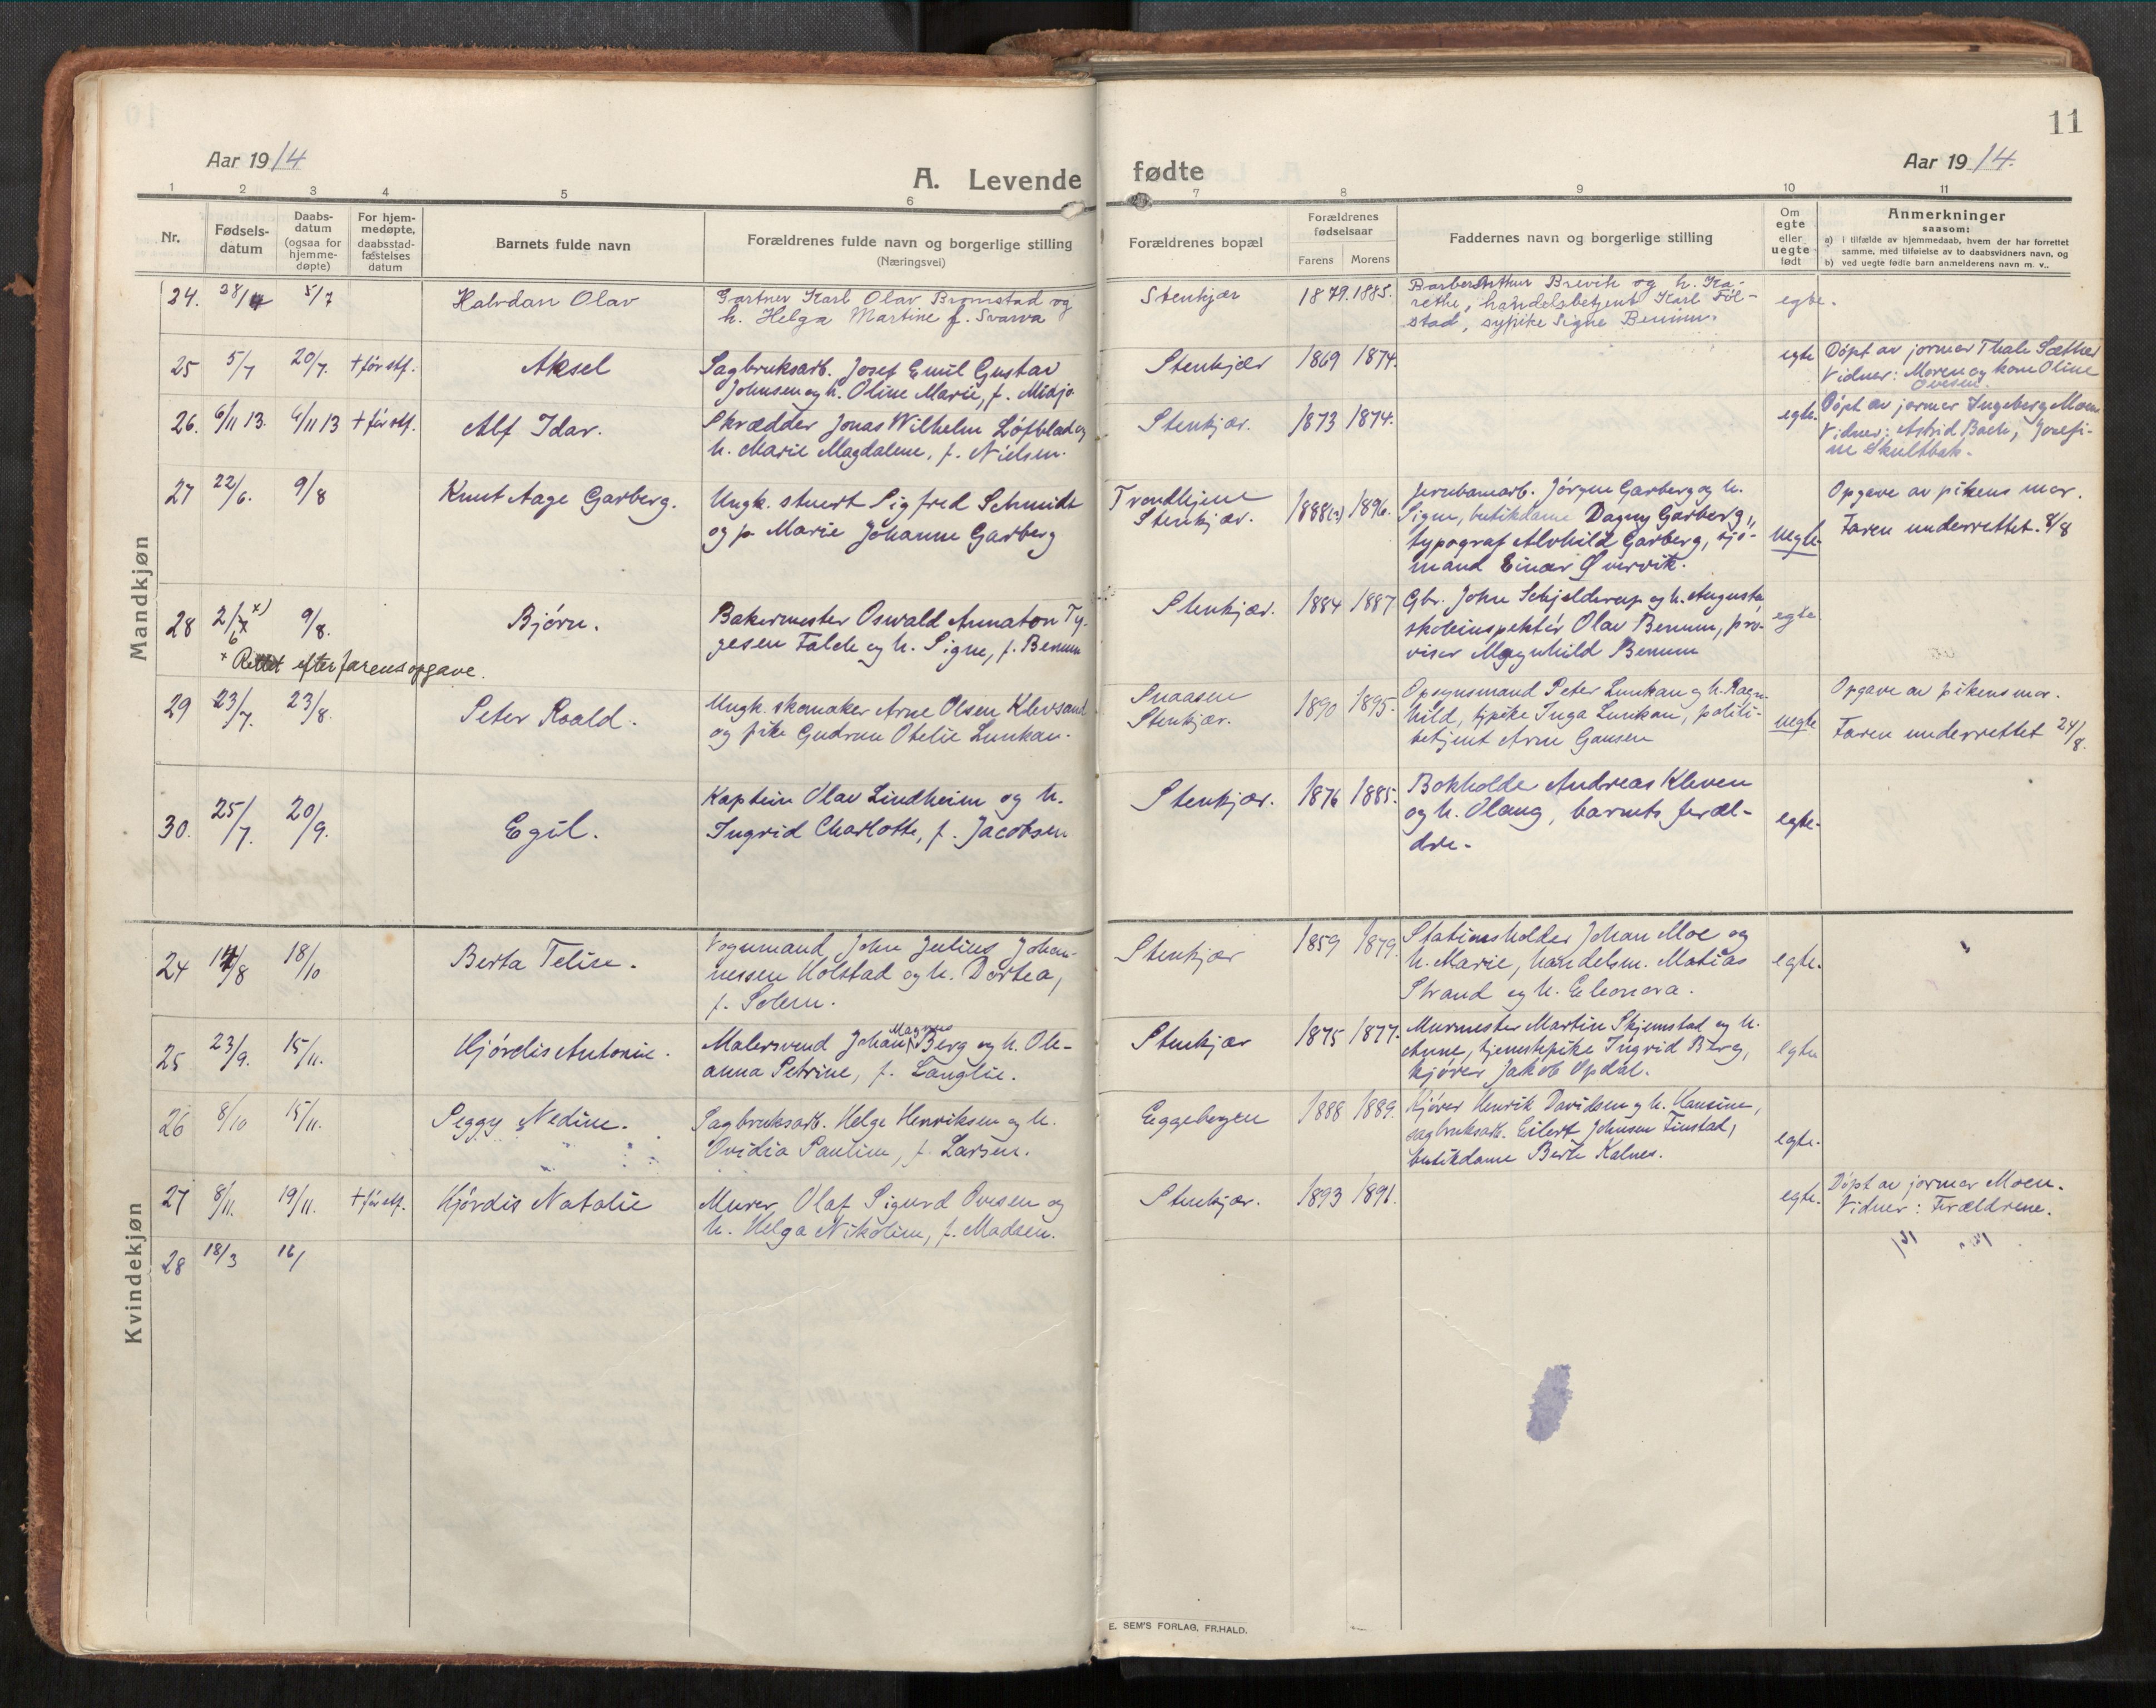 11
Aar 1914
A. Levende
fødte
Aar 1914.
1 2 3 4 5 6
7 8 9 10 11
Nr.
Fødsels-
datum
Daabs-
datum
(ogsaa for
hjemme-
døpte)
For hjem-
medøpte,
daabsstad-
fæstelses
datum
Barnets fulde navn
Forældrenes fulde navn og borgerlige stilling
(Næringsvei)
Forældrenes bopæl
Forældrenes
fødselsaar
Farens Morens
Faddernes navn og borgerlige stilling
Om
egte
eller
uegte
født
Anmerkninger
saasom:
a) I tilfælde av hjemmedaab, hvem der har forrettet
samme, med tilføielse av to daabsvidners navn, og
b) ved uegte fødte barn anmelderens navn m. v..
Mandkjøn
24. 28/4 5/7 Halvdan Olav
Gartner Karl Olav Bromstad og
h. Helga Martine f. Svarva
Stenkjær 1879. 1885.
Barber Arthur Brevik og h. Ka-
rethe, handelsbetjent Karl Føl-
stad, sypike Signe Benum.
egte.
25 5/7 20/7. + før stf. Aksel
Sagbruksarb. Josef Emil Gustav
Johnsen og h. Oline Marie, f. Midjo
Stenkjær 1869 1874.
egte
Døpt av jormor Thale Sæther
Vidner: Moren og kone Oline
Ovesen.
26. 6/11 13. 6/11 13 + før stf. Alf Idar.
Skrædder Jonas Wilhelm Löfblad og
h. Marie Magdalene, f. Nielsen.
Stenkjær. 1873 1874.
egte.
Døpt av jormor Ingeberg Moen
Vidner: Astrid Bach, Josefi-
ne Skultbak.
27 22/6. 9/8 Knut Aage Garberg.
Ungk. stuert Sigfred Schmidt
og p. Marie Johanne Garberg
Trondhjem
Stenkjær. 1888(?) 1896.
Jernbanarb. Jörgen Garberg og h.
Signe, butikdame Dagny Garberg,
typograf Alvhild Garberg, sjö-
mand Einar Øvervik.
uegte.
Opgave av pikens mor.
Faren underrettet. 8/8
28 2/6 x) 9/8. Bjørn.
x Rettet efter farens opgave.
Bakermester Oswald Annaton Ty-
gesen Falde og h. Signe, f. Benum
Stenkjær. 1884 1887
Gbr. John Schjelderup og h. Augusta,
skoleinspektør Olav Benum, pro-
visor Magnhild Benum
egte.
29 23/7. 23/8. Peter Roald.
Ungk. skomaker Arne Olsen Klevsand
og pike Gudrun Otelie Lunkan.
Snaasen
Stenkjær. 1890 1895.
Opsynsmand Peter Lunkan og h. Ragn-
hild, tjpike Inga Lunkan, politi-
betjent Arne Gausen
uegte
Opgave av pikens mor.
Faren underrettet 24/8.
30. 25/7. 20/9. Egil.
Kaptein Olav Lindheim og h.
Ingrid Charlotte, f. Jacobsen
Stenkjær. 1876 1885.
Bokholder Andreas Kleven
og h. Olaug, barnets foræl-
dre.
egte.
Kvindekjøn
24 14/8 18/10 Berta Telise.
Vognmand John Julius Johan-
nessen Holstad og h. Dortea,
f. Solem.
Stenkjær 1859 1879.
Stationsholder Johan Moe og
h. Marie, handelsm. Matias
Strand og h. Eleonora.
egte.
25 23/9. 15/11. Hjørdis Antonie.
Malersvend Johan Magnus Berg og h. Ole-
anna Petrine, f. Langlie.
Stenkjær 1875 1877.
Murmester Martin Skjemstad og h.
Anne, tjenestepike Ingrid Berg,
kjører Jakob Opdal.
egte
26 8/10 15/11. Peggy Nedine.
Sagbruksarb. Helge Henriksen og h.
Ovidia Pauline, f. Larsen.
Eggebogen 1888 1889.
Kjører Henrik Davidsen og h. Hansine,
sagbruksarb. Eilert Johnsen Finstad,
butikdame Berte Kalnes.
egte.
27 8/11. 19/11. + før stf. Hjørdis Natalie
Murer Olaf Sigurd Ovesen og
h. Helga Nikoline, f. Madsen.
Stenkjær. 1893 1891.
egte.
Døpt av jormor Moen.
Vidner: Forældrene.
28 18/3 16/
E. SEM'S FORLAG, FR.HALD.